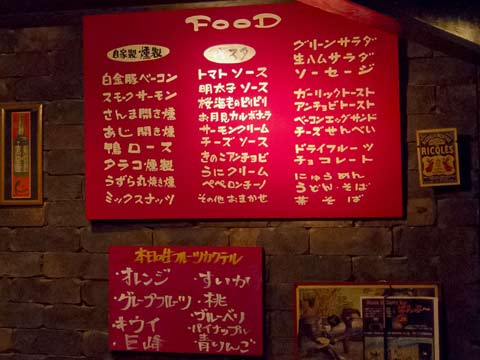 FOOD
自家製 燻製
白金豚ベーコン
スモークサーモン
さんま開き燻
あじ開き燻
鴨ロース
タラコ燻製
うずら丸焼き燻
ミックスナッツ
パスタ
トマトソース
明太子ソース
桜海老のピリピリ
お月見カルボナーラ
サーモンクリーム
チーズソース
きのこアンチョビ
うにクリーム
ペペロンチーノ
その他おまかせ
グリーンサラダ
生ハムサラダ
ソーセージ
ガーリックトースト
アンチョビトースト
ベーコンエッグサンド
チーズせんべい
ドライフルーツ
チョコレート
にゅうめん
うどん・そば
茶そば
RICQLES
本日の生フルーツカクテル
・オレンジ
・グレープフルーツ
・キウイ
・巨峰
・すいか
・桃
・ブルーベリー
・パイナップル
・青りんご